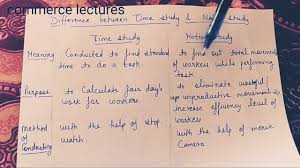 commerce lectures
Difference between Time study & Motion study
Time study
Motion study
Meaning
Conducted to find standard
time to do a task
to find out total movement
of workers while performing
task
Purpose
to calculate fair day's
work for workers
to eliminate
unproductive movement
increase efficiency level of
worker
Method
of
Conducting
with the help of stop
watch.
with the help of movie
Camera